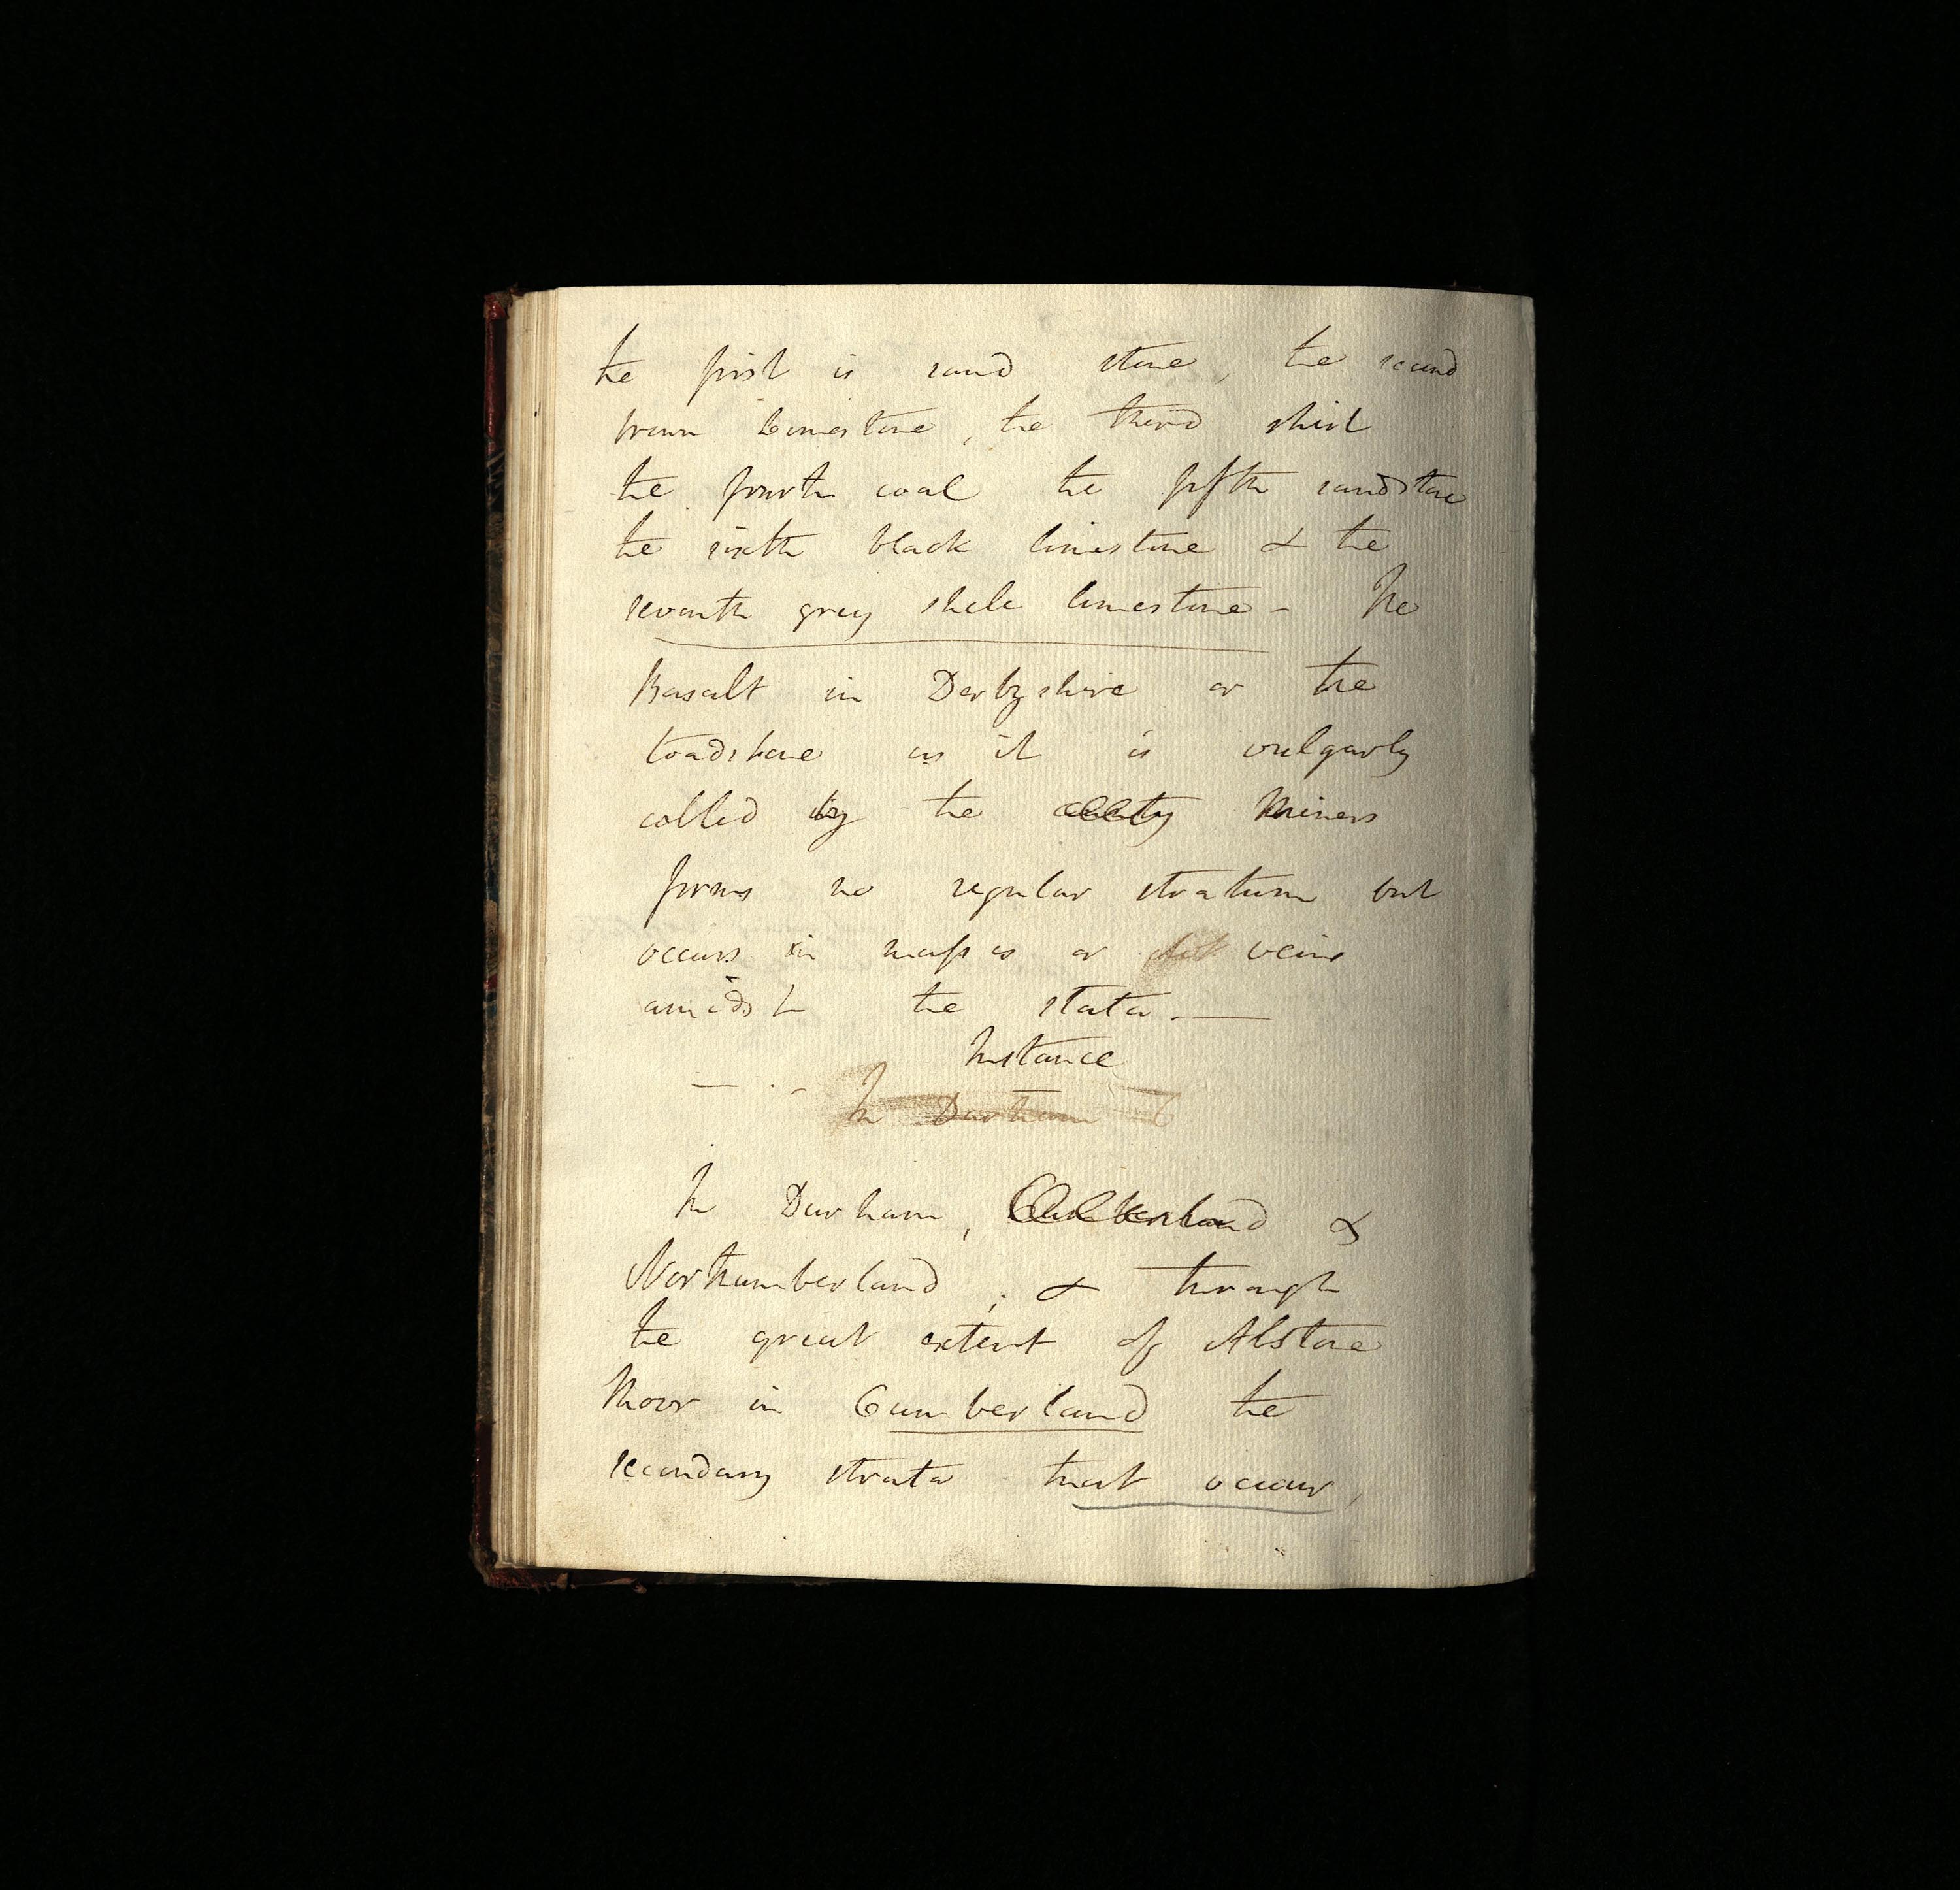 the first is sand stone, the second
brown limestone, the third shist
the fourth coal the fifth sandstone
the sixth black limestone & the
seventh grey shele limestone - The
Basalt in Derbyshire or the
toadstone as it is vulgarly
called by the Miners
forms no regular stratum but
occurs in masses or veins
amidst the stata. —
Instance
In Durham
In Durham, Cumberland &
Northumberland, & through
the great extent of Alstone
Moor in Cumberland the
secondary strata that occur,